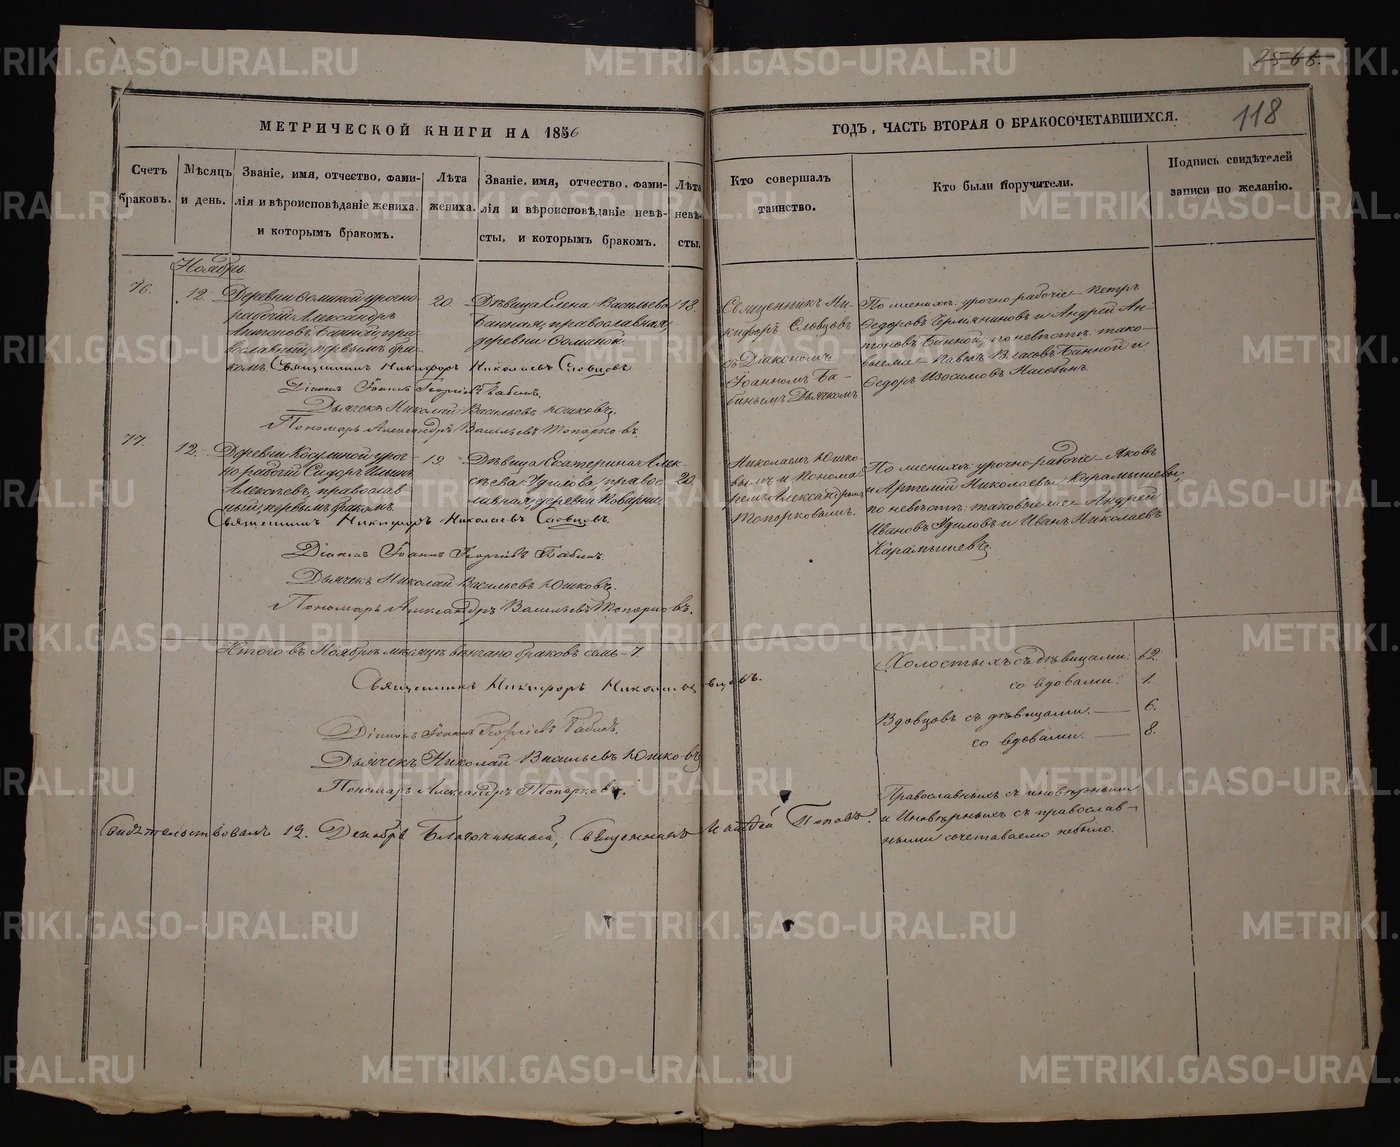 2566.
118
МЕТРИЧЕСКОЙ КНИГИ НА 1856
ГОДЪ, ЧАСТЬ ВТОРАЯ О БРАКОСОЧЕТАВШИХСЯ.
Счетъ браковъ.
Мѣсяцъ и день.
Званіе, имя, отчество, фами-
лія и вѣроисповѣданіе жениха.
и которымъ бракомъ.
Лѣта жениха.
Званіе, имя, отчество, фами-
лія и вѣроисповѣданіе невѣ-
сты, и которымъ бракомъ.
Лѣта невѣ-
сты.
Кто совершалъ
таинство.
Кто были поручители.
Подпись свидѣтелей
записи по желанію.
Ноябрь
76.
12.
Деревни Ѳоминой урочно
рабочій Александръ
Антоновъ Банной, пра-
вославный, первымъ бра-
комъ.
20.
Дѣвица Елена Васильева
Банная, православная,
деревни Ѳоминой.
18.
Священникъ Ни-
кифоръ Словцовъ
съ Діакономъ
Іоанномъ Ба-
бинымъ Дьячкомъ
По женихѣ: урочно рабочіе — Петръ
Ѳедоровъ и Андрей Ан-
тоновъ Банной; по невѣстѣ: тако-
выежъ — Павелъ Власовъ Банной и
Ѳедоръ Изосимовъ
Священникъ Никифоръ Николаевъ Словцовъ
Діаконъ Іоаннъ Георгіевъ Бабинъ.
Дьячекъ Николай Васильевъ Юшковъ.
Пономарь Александръ Васильевъ Топорковъ.
77.
12.
Деревни уроч-
но рабочій Сидоръ
Алексѣевъ, православ-
ный, первымъ бракомъ.
19.
Дѣвица Екатерина Алек-
сѣева Удилова, правос-
лавная, деревни
20.
Николаемъ Юшко-
вымъ и Понома-
ремъ Александромъ
Топорковымъ.
По женихѣ: урочно рабочіе — Яковъ
и Артемій Николаевы Карамышевы;
по невѣстѣ: таковые же — Андрей
Ивановъ Удиловъ и Иванъ Николаевъ
Карамышевъ.
Священникъ Никифоръ Николаевъ Словцовъ.
Діаконъ Іоаннъ Георгіевъ Бабинъ
Дьячекъ Николай Васильевъ Юшковъ.
Пономарь Александръ Васильевъ Топорковъ.
Итого въ Ноябрѣ мѣсяцѣ вѣнчано браковъ семь — 7.
Священникъ Никифоръ Николаевъ
Діаконъ Іоаннъ Георгіевъ Бабинъ.
Дьячекъ Николай Васильевъ Юшковъ
Пономарь Александръ Топорковъ.
Холостыхъ съ дѣвицами: 62.
со вдовами: 1.
Вдовцовъ съ дѣвицами. — 6.
со вдовами. — 8.
Православныхъ съ иновѣрными
и Иновѣрныхъ съ православ-
ными сочетаваемо небыло.
Свидѣтельствовалъ 12. Декабря Благочинный, Священникъ Поповъ.
METRIKI.GASO-URAL.RU